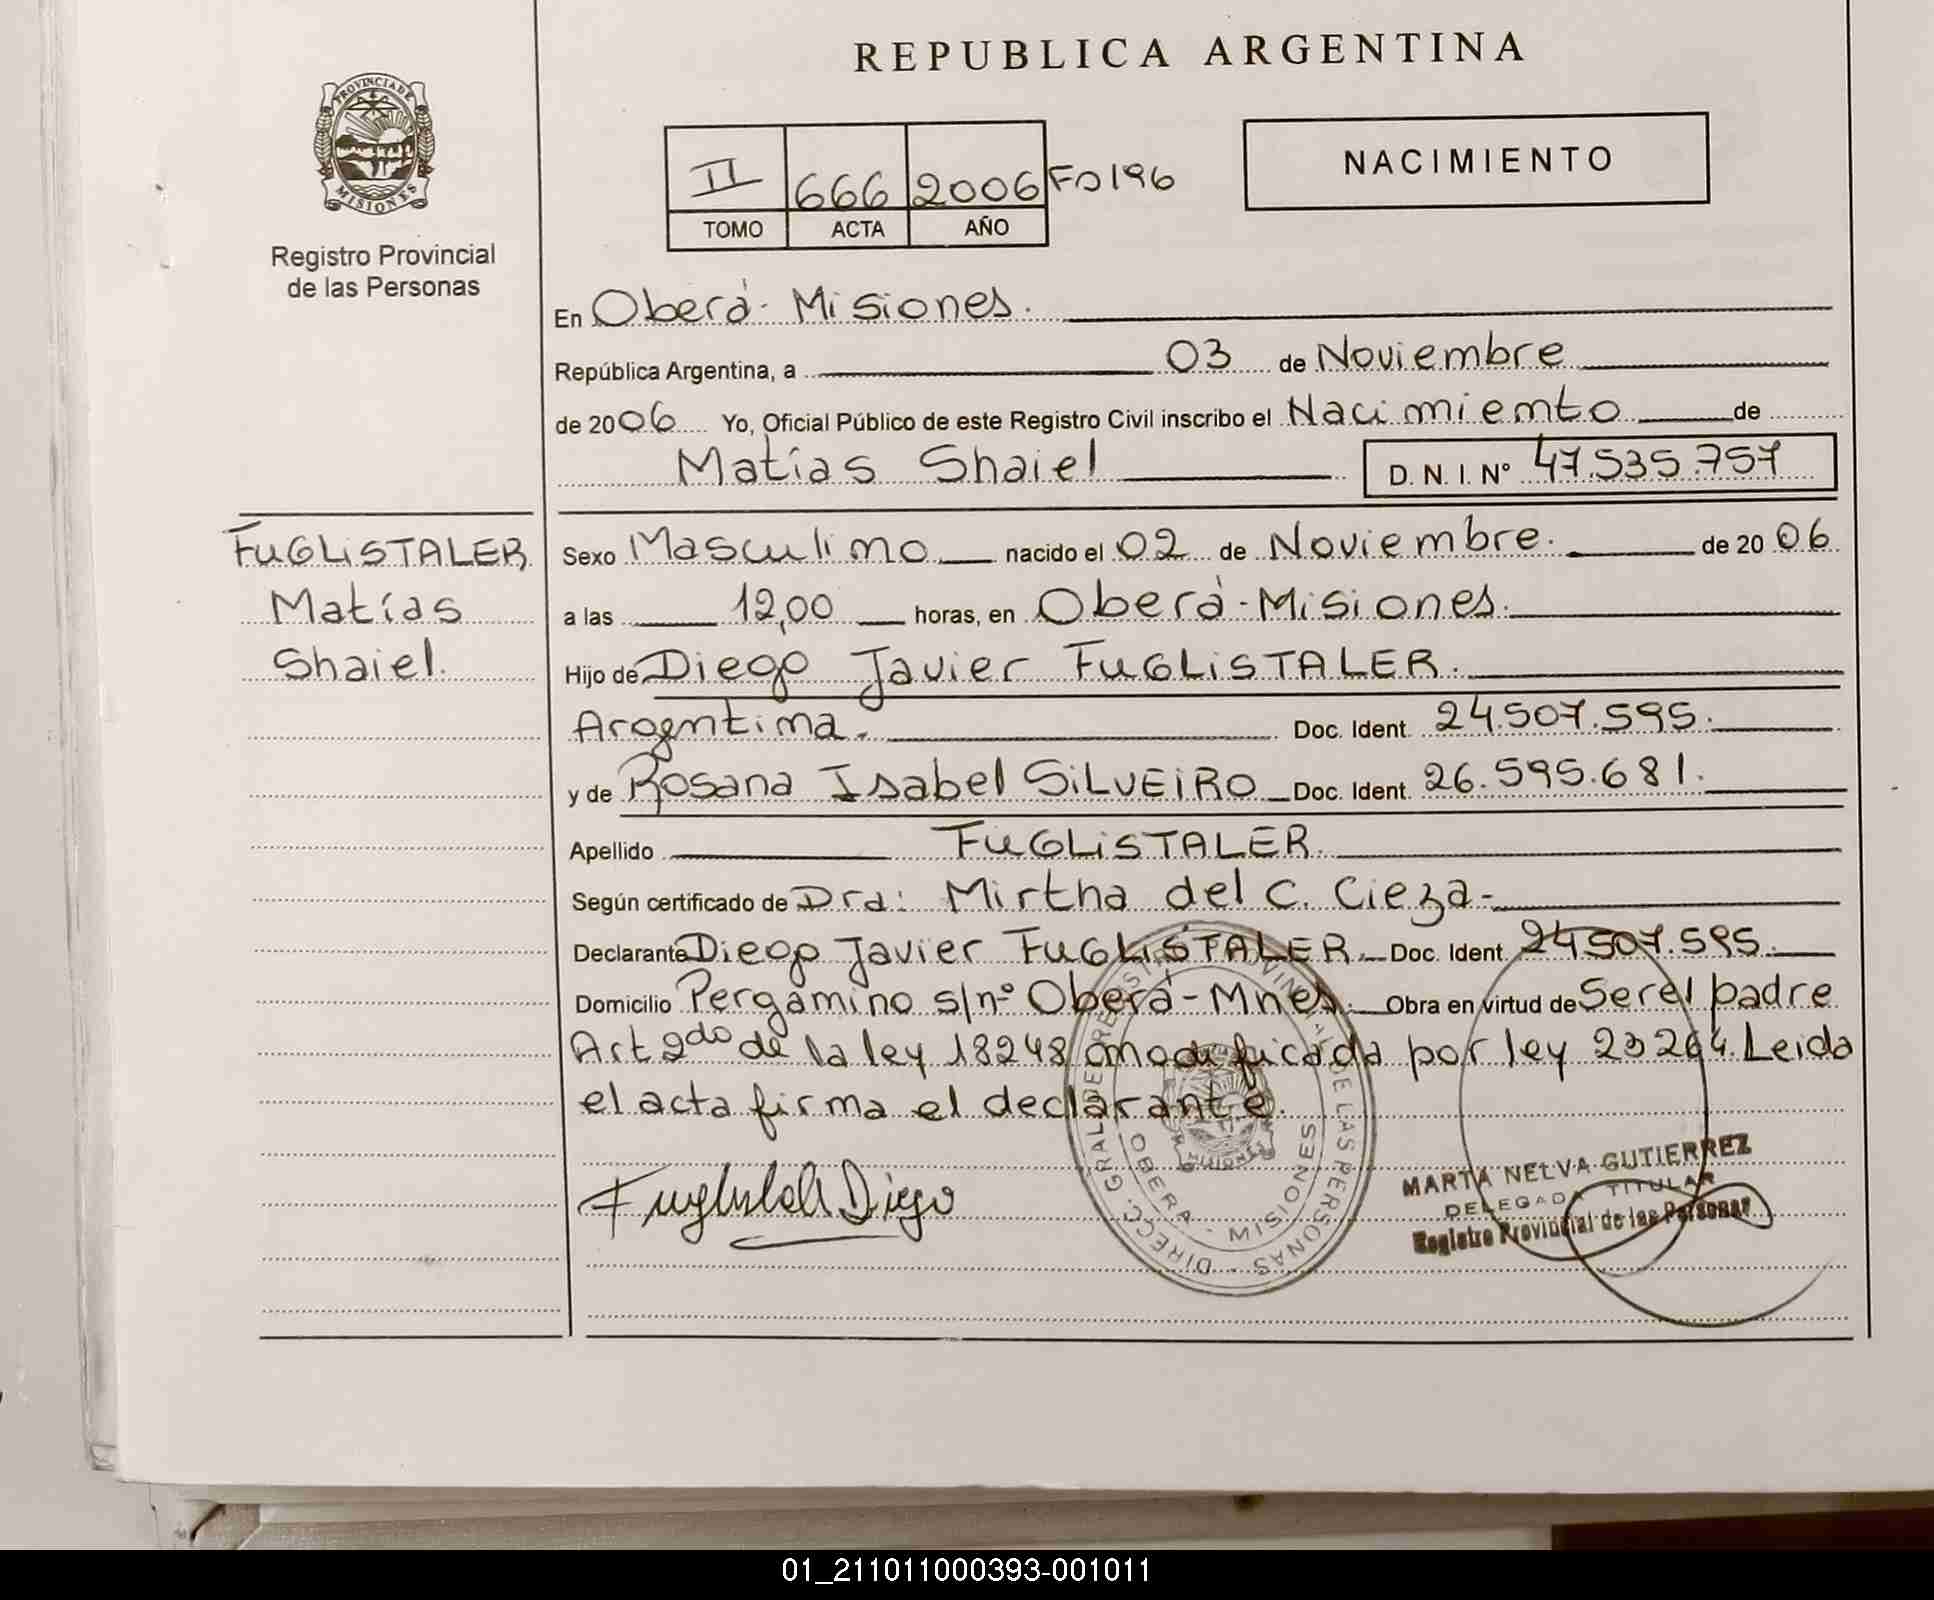 REPUBLICA ARGENTINA
PROVINCIA DE
MISIONES
Registro Provincial
de las Personas
II 666 2006 Fo 196
TOMO ACTA AÑO
NACIMIENTO
En Oberá - Misiones.
República Argentina, a 03 de Noviembre
de 2006 Yo, Oficial Público de este Registro Civil inscribo el Nacimiento de
Matías Shaiel D. N. I. Nº 47.535.757
FUGLiSTALER
Matías
Shaiel.
Sexo Masculino nacido el 02 de Noviembre. de 2006
a las 12,00 horas, en Oberá - Misiones.
Hijo de Diego Javier FUGLiSTALER.
Arogentina. Doc. Ident. 24.507.595.
y de Rosana Isabel SiLVEiRO Doc. Ident. 26.595.681.
Apellido FUGLiSTALER.
Según certificado de Dra: Mirtha del C. Cieza-
Declarante Diego Javier FUGLiSTALER. Doc. Ident. 24507.595.
Domicilio Pergamino s/nº Oberá - Mnes. Obra en virtud de Ser el padre
Art 2do de la ley 18248 modificada por ley 23264. Leida
el acta firma el declarante.
DIRECC. GRAL DE REGISTRO PROVINCIAL DE LAS PERSONAS
OBERA - MISIONES
MISIONES
Diego
MARTA NELVA GUTIERREZ
DELEGADA TITULAR
Registro Provincial de las Personas
01_211011000393-001011